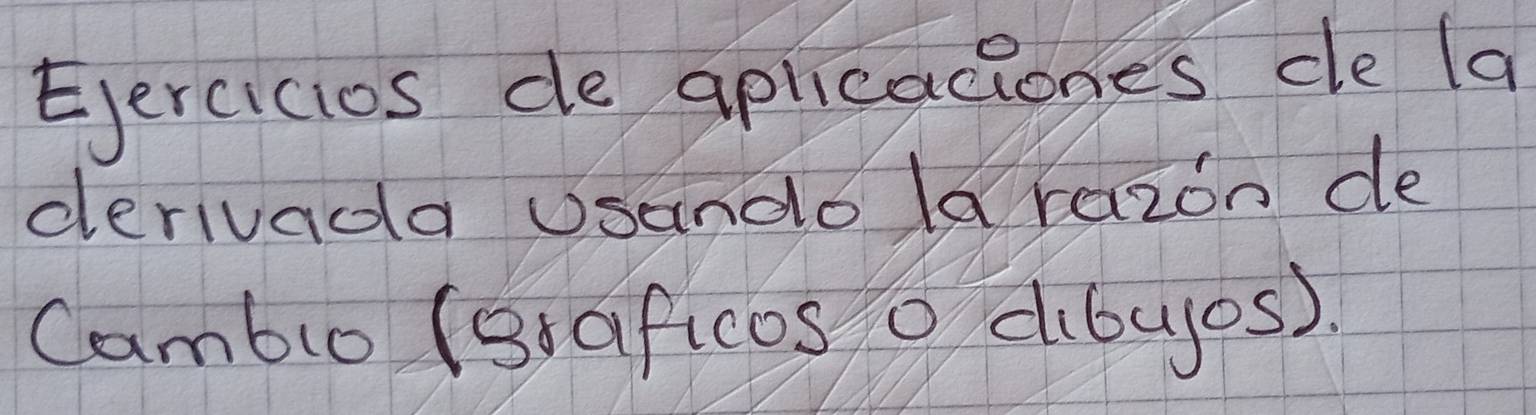 Ejercicios de aplicaciones de la
derivada usando la razón de
Cambio (graficos o dibujos).